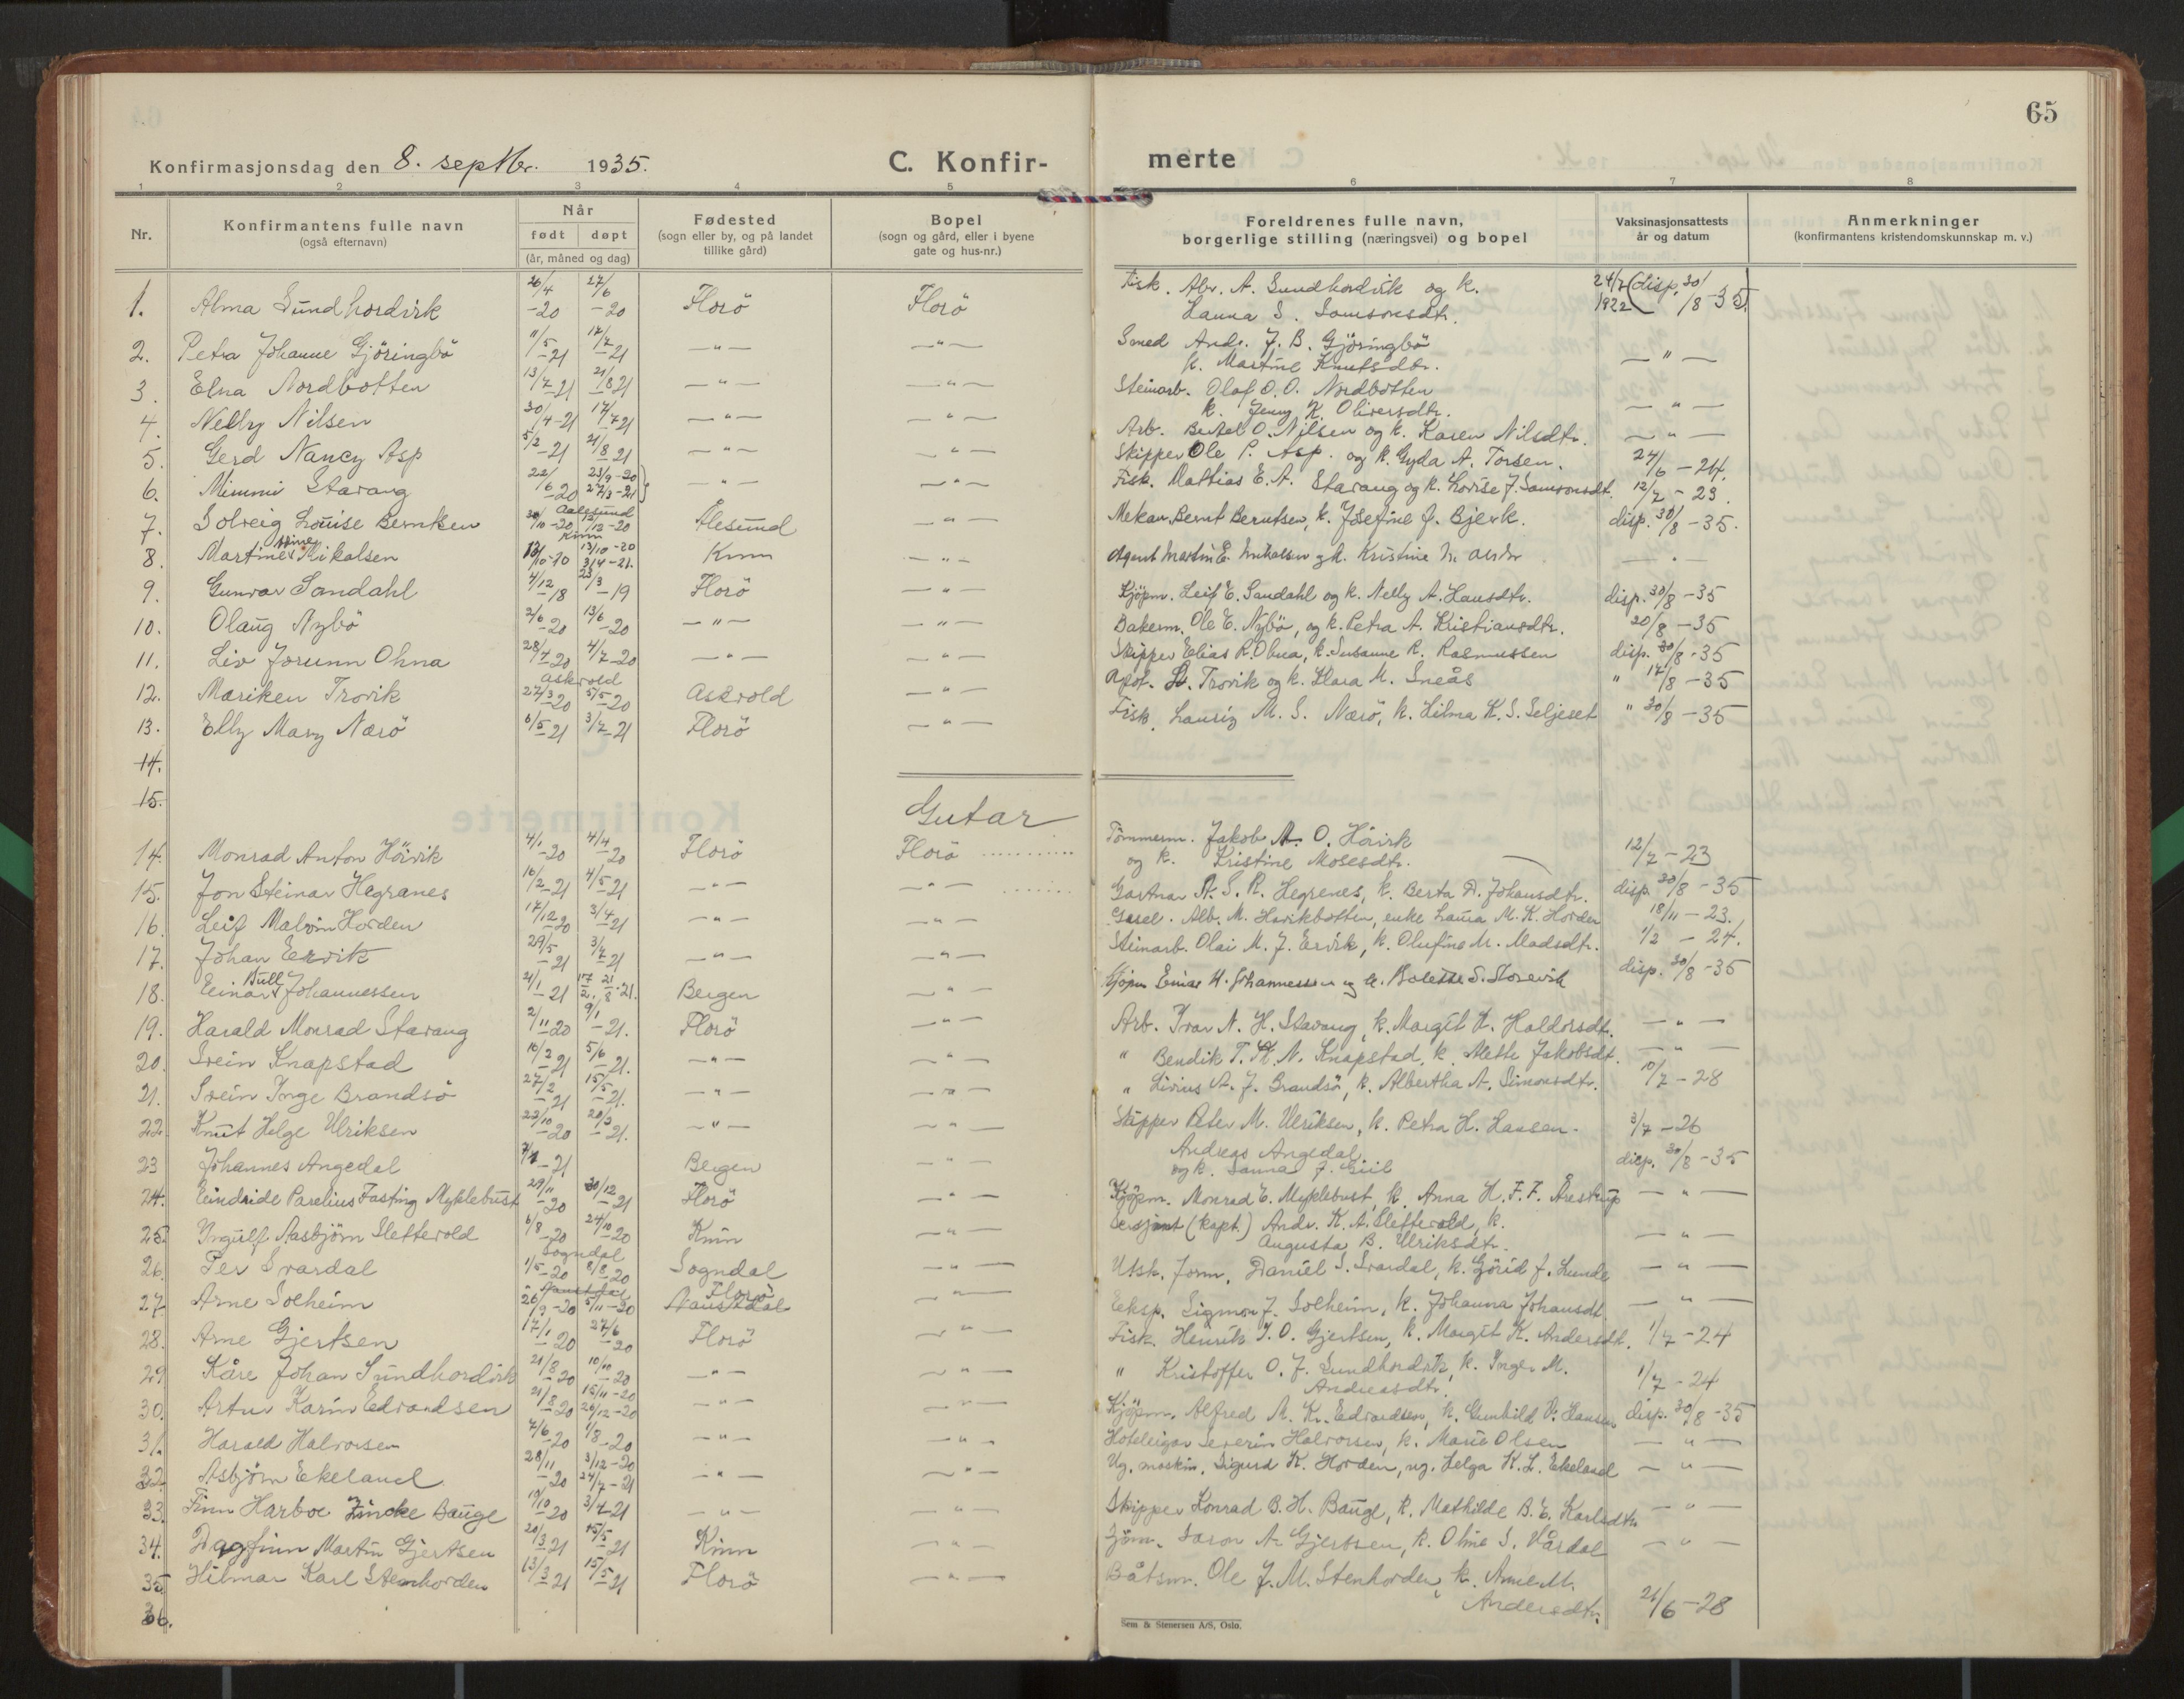 65
Konfirmasjonsdag den 8. septbr. 1935.
C. Konfir-
merte
1 2 3 4 5 6 7 8
Nr.
Konfirmantens fulle navn
(også efternavn)
Når
født døpt
(år, måned og dag)
Fødested
(sogn eller by, og på landet
tillike gård)
Bopel
(sogn og gård, eller i byene
gate og hus-nr.)
Foreldrenes fulle navn,
borgerlige stilling (næringsvei) og bopel
Vaksinasjonsattests
år og datum
Anmerkninger
(konfirmantens kristendomskunnskap m. v.)
1. Alma Sundhordvik 26/4 -20 27/6 -20 Florö Florö Fisk. Abr. A. Sundhordvik og k.
Hanna S. Samsonsdtr. 24/7 1922 (disp. 30/8 -35.
2. Petra Johanne Gjöringbö 11/5 -21 17/7 -21 — " — — " — Smed Andr. J. B. Gjöringbö
k. Martine Knutsdtr. — " —
3. Elna Nordbotten 13/7 -21 21/8 21 — " — — " — Steinarb. Olaf O. O. Nordbotten
k. Jenny K. Oliversdtr. — " —
4. Nelly Nilsen 30/4 -21 17/7 21 — " — — " — Arb. Bertel O. Nilsen og k. Karen Nilsdtr. — " —
5. Gerd Nancy Asp 5/2 -21 21/8 21 — " — — " — Skipper Ole P. Asp. og k. Gyda A. Torsen. 24/6 - 24.
6. Mimmi Stavang 22/6 -20 23/9 -20 27/3 -21 — " — — " — Fisk. Mathias E. A. Stavang og k. Lovise J. Samsonsdt. 12/7 - 23.
7. Solveig Louise Berntsen 30/10 -20 Aalesund 12/12 -20 Ålesund — " — Mekan. Bernt Berntsen, k. Josefine J. Bjerk. disp. 30/8 -35.
8. Martine Mikalsen Kinn 13/10 -20 3/4 -21. Kinn — " — Agent Martin E. Mikalsen og k. Kristine N. — " —
9. Gunvor Sandahl 4/12 -18 23/3 -19 Florö — " — Kjöpm. Leif E. Sandahl og k. Nelly A. Hansdtr. disp. 30/8 -35
10. Olaug Nybö 2/6 -20 13/6 -20 — " — — " — Bakerm. Ole E. Nybö, og k. Petra A. Kristiansdtr. 20/8 -35
11. Liv Jorunn Ohna 28/4 -20 4/7 -20 — " — — " — Skipper Elias R. Ohna, k. Susanne R. Rasmussen disp. 30/8 -35
12. Mariken Trovik Askvold 27/3 -20 5/5 -20 Askvold — " — Apot. Trovik og k. Klara M. Sneås " 17/8 -35
13. Elly Mary Nærö 6/5 -21 3/7 -21 Florö — " — Fisk. Lauriz M. S. Nærö, k. Hilma K. S. Seljeset " 30/8 -35
14.
15.
Gutar
14. Monrad Anton Höivik 4/1 -20 4/4 -20 Florö Florö Tömmerm. Jakob A. O. Höivik
og k. Kristine Mosesdtr. 12/7 - 23
15. Jon Steinar Hegranes 16/2 -21 4/5 -21 — " — — " — Gartnar A. S. R. Hegrenes, k. Berta D. Johansdtr. disp. 30/8 -35
16. Leif Malvin Horden 17/12 20 3/4 -21 — " — — " — Alb. M. Havikbotten, enke Laura M. K. Horden 18/11 - 23.
17. Johan Ervik 29/5 -21 3/7 21 — " — — " — Steinarb. Olai M. J. Ervik, k. Olufine M. Madsdtr. 1/2 - 24.
18. Einar Bull Johannessen 21/1 -21 21/8 -21. Bergen — " — Kjöpm Einar H. Johannessen og k. Bolette S. Storevik disp. 30/8 -35
19. Harald Monrad Stavang 2/11 -20 9/1 -21. Florö — " — Arb. Ivar N. H. Stavang, k. Margit K. Haldorsdt. — " —
20. Svein Knapstad 16/2 -21 5/6 -21. — " — — " — " Bendik T. K. N. Knapstad, k. Mette Jakobsdt. — " —
21. Svein Inge Brandsö 27/2 -21 15/5 -21. — " — — " — " Livius A. J. Brandsö, k. Albertha A. Simonsdtr. 10/7 - 28
22. Knut Helge Ulriksen 22/10 -20 20/3 -21. — " — — " — Skipper Peter M. Ulriksen, k. Petra H. Hansen. 3/7 - 26
23 Johannes Angedal -21 Bergen — " — Andreas Angedal
og k. Sanna J. Giil disp. 30/8 -35
24. Eindride Parelius Fasting Myklebust 29/11 -20 30/12 -21 Florö — " — Kjöpm. Monrad E. Myklebust, k. Anna H. F. F. Årestrup — " —
25. Yngulf Aasbjörn Sletterold 6/8 -20 24/10 -20 Kinn — " — Sersjant (kapt.) Andr. K. A. Sletterold, k.
Augusta B. Ulriksdtr. — " —
26. Per Svardal Sogndal 1/5 -20 8/8 -20 Sogndal — " — Utsk. form. Daniel S. Svardal, k. Görid J. Lunde — " —
27. Arne Solheim Naustdal 26/9 -20 5/11 -20 Naustdal Florö — " — Eksp. Sigmon J. Solheim, k. Johanna Johansdt. — " —
28. Arne Gjertsen 17/1 -20 27/6 -20 Florö — " — Fisk. Henrik J. O. Gjertsen, k. Margit K. Andersdt. 1/7 - 24
29. Kåre Johan Sundhordvik 21/8 -20 10/10 -20 — " — — " — " Kristoffer O. J. Sundhordvik, k. Inge M.
Andreasdtr. 1/7 - 24
30. Artur Karin Edvardsen 21/8 20 15/11 -20 26/12 -20 — " — — " — Kjöpm. Alfred M. K. Edvardsen, k. Gunhild V. Hansen disp. 30/8 -35
31. Harald Halvorsen 7/6 -20 1/8 -20 — " — — " — Hoteleigar Severin Halvorsen, k. Marie Olsen — " —
32. Asbjörn Ekeland 28/11 -20 3/12 -20 24/7 -21 — " — — " — Ug. maskin. Sigurd K. Horden, ug. Helga K. L. Ekeland — " —
33. Finn Harboe Zincke Bauge 19/10 -20 3/4 -21 — " — — " — Skipper Konrad B. H. Bauge, k. Mathilde B. E. Karlsdtr — " —
34. Dagfinn Martin Gjertsen 20/3 21 15/5 21 Kinn — " — Sjöm. Saron A. Gjertsen, k. Oline S. Vårdal — " —
35 Hilmar Karl Stenhorden 13/3 21 15/5 21 Florö — " — Båtsm. Ole J. M. Stenhorden, k. Anne M.
Andersdtr. 21/6 - 28
36.
Sem & Stenersen A/S, Oslo.